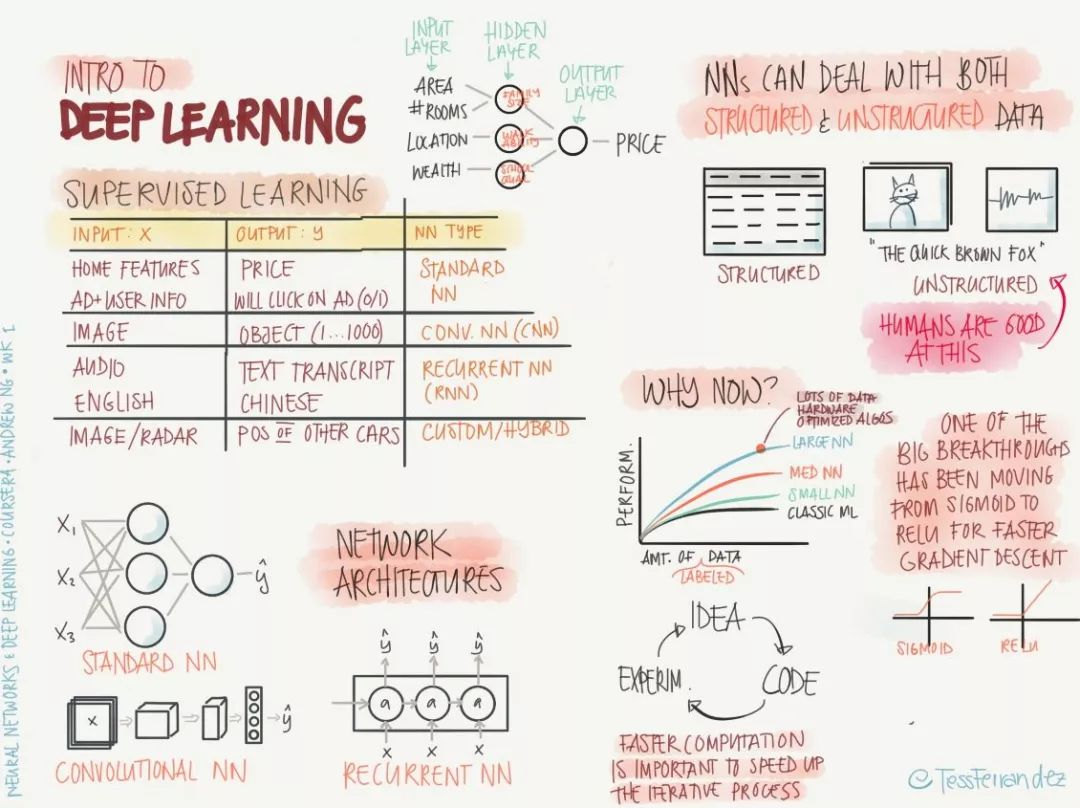 INTRO TO
DEEP LEARNING
INPUT LAYER
HIDDEN LAYER
OUTPUT LAYER
AREA
#ROOMS
LOCATION
WEALTH
FAMILY SIZE
WALK ABILITY
SCHOOL QUAL
PRICE
SUPERVISED LEARNING
INPUT: X OUTPUT: y NN TYPE
HOME FEATURES PRICE STANDARD
AD+USER INFO WILL CLICK ON AD (0/1) NN
IMAGE OBJECT (1...1000) CONV. NN (CNN)
AUDIO TEXT TRANSCRIPT RECURRENT NN
ENGLISH CHINESE (RNN)
IMAGE/RADAR POS OF OTHER CARS CUSTOM/HYBRID
X1
X2
X3
ŷ
STANDARD NN
X
ŷ
CONVOLUTIONAL NN
NETWORK
ARCHITECTURES
ŷ ŷ ŷ
a a a
X X X
RECURRENT NN
NNs CAN DEAL WITH BOTH
STRUCTURED & UNSTRUCTURED DATA
STRUCTURED
"THE QUICK BROWN FOX"
UNSTRUCTURED
HUMANS ARE GOOD
AT THIS
WHY NOW?
LOTS OF DATA
HARDWARE
OPTIMIZED ALGOS
LARGE NN
MED NN
SMALL NN
CLASSIC ML
PERFORM.
AMT. OF DATA
LABELED
ONE OF THE
BIG BREAKTHROUGHS
HAS BEEN MOVING
FROM SIGMOID TO
RELU FOR FASTER
GRADIENT DESCENT
SIGMOID
RELU
IDEA
CODE
EXPERIM.
FASTER COMPUTATION
IS IMPORTANT TO SPEED UP
THE ITERATIVE PROCESS
NEURAL NETWORKS & DEEP LEARNING • COURSERA • ANDREW NG • WK 1
@TessFerrandez